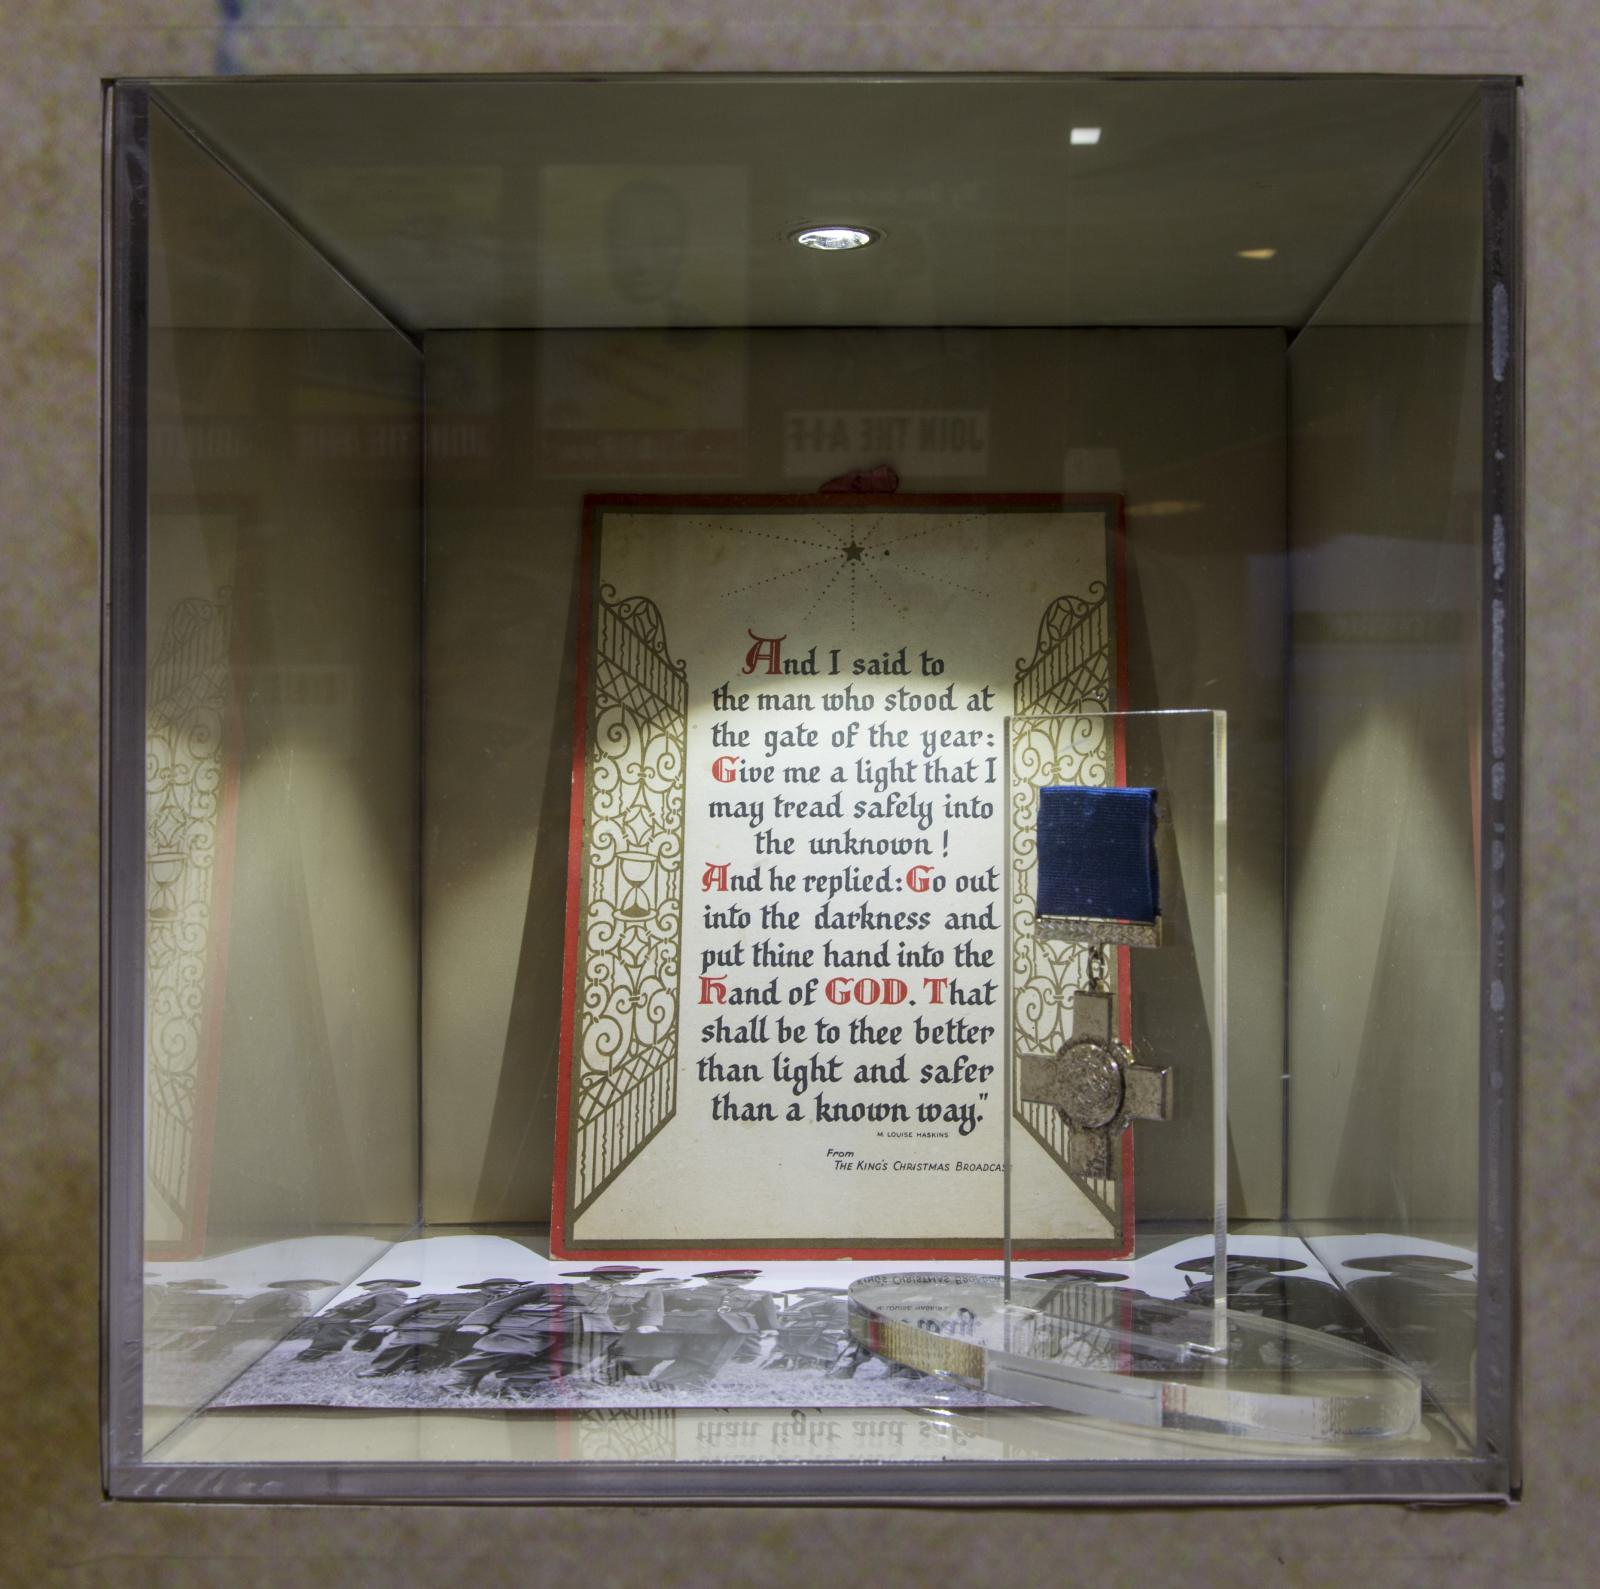 JOIN THE A·I·F
And I said to
the man who stood at
the gate of the year:
Give me a light that I
may tread safely into
the unknown !
And he replied: Go out
into the darkness and
put thine hand into the
Hand of GOD. That
shall be to thee better
than light and safer
than a known way."
M LOUISE HASKINS
From
THE KING'S CHRISTMAS BROADCAS